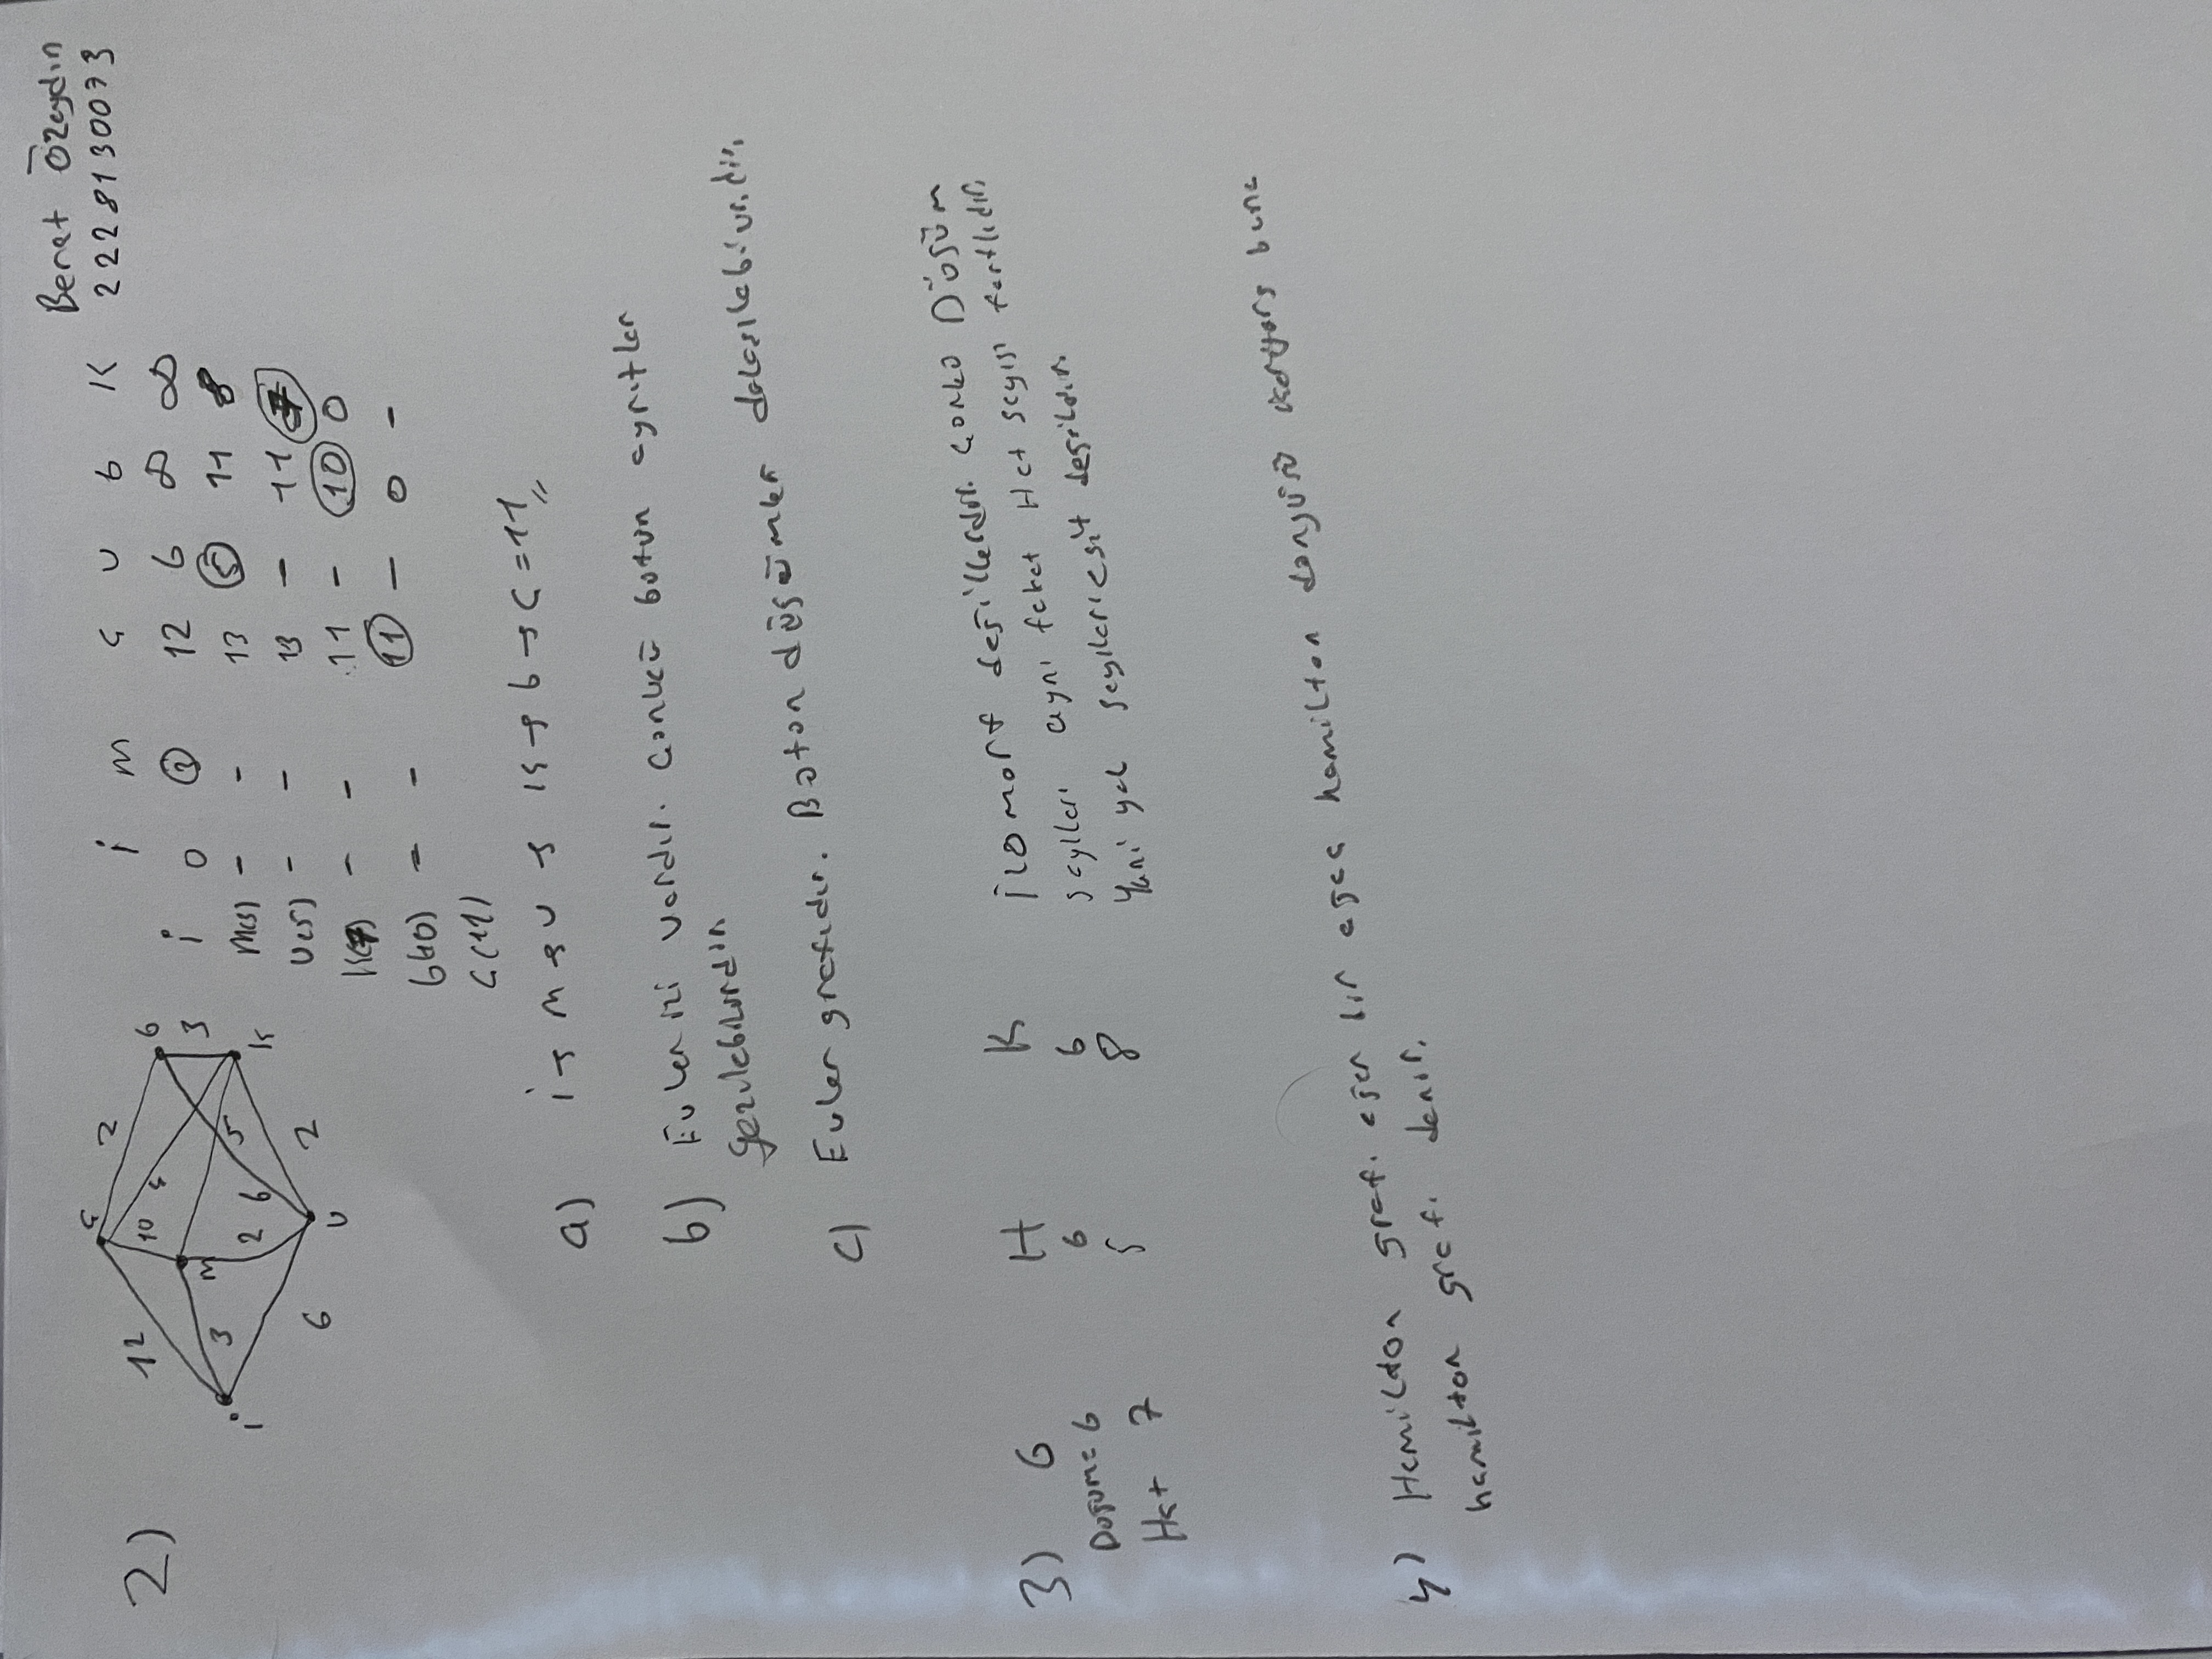 Berat Özaydın
2228130073
2)
Ç
12
10
4
2
6
3
M
3
i
2
6
5
K
6
U
2
i M Ç U 6 K
i 0 3 12 6 ∞ ∞
M(3) - - 13 5 11 8
U(5) - - 13 - 11 7
K(7) - - 11 - 10 0
6(10) - - 11 - 0 -
Ç(11)
a) i → M → U → K → 6 → Ç = 11
b) Euler izi vardır. Çünkü bütün ayrıtlar
gezilebilirdir
c) Euler grafıdır. Bütün düğümler dolaşılabilirdir.
3) G H K İzomorf değillerdir. Çünkü Düğüm
Düğüm= 6 6 6 sayıları aynı fakat Hat sayısı farklıdır.
Hat 7 5 8 Yani yol sayıları eşit değildir.
4) Hamilton grafı eğer bir ağaç hamilton döngüsü içeriyorsa buna
hamilton grafı denir.